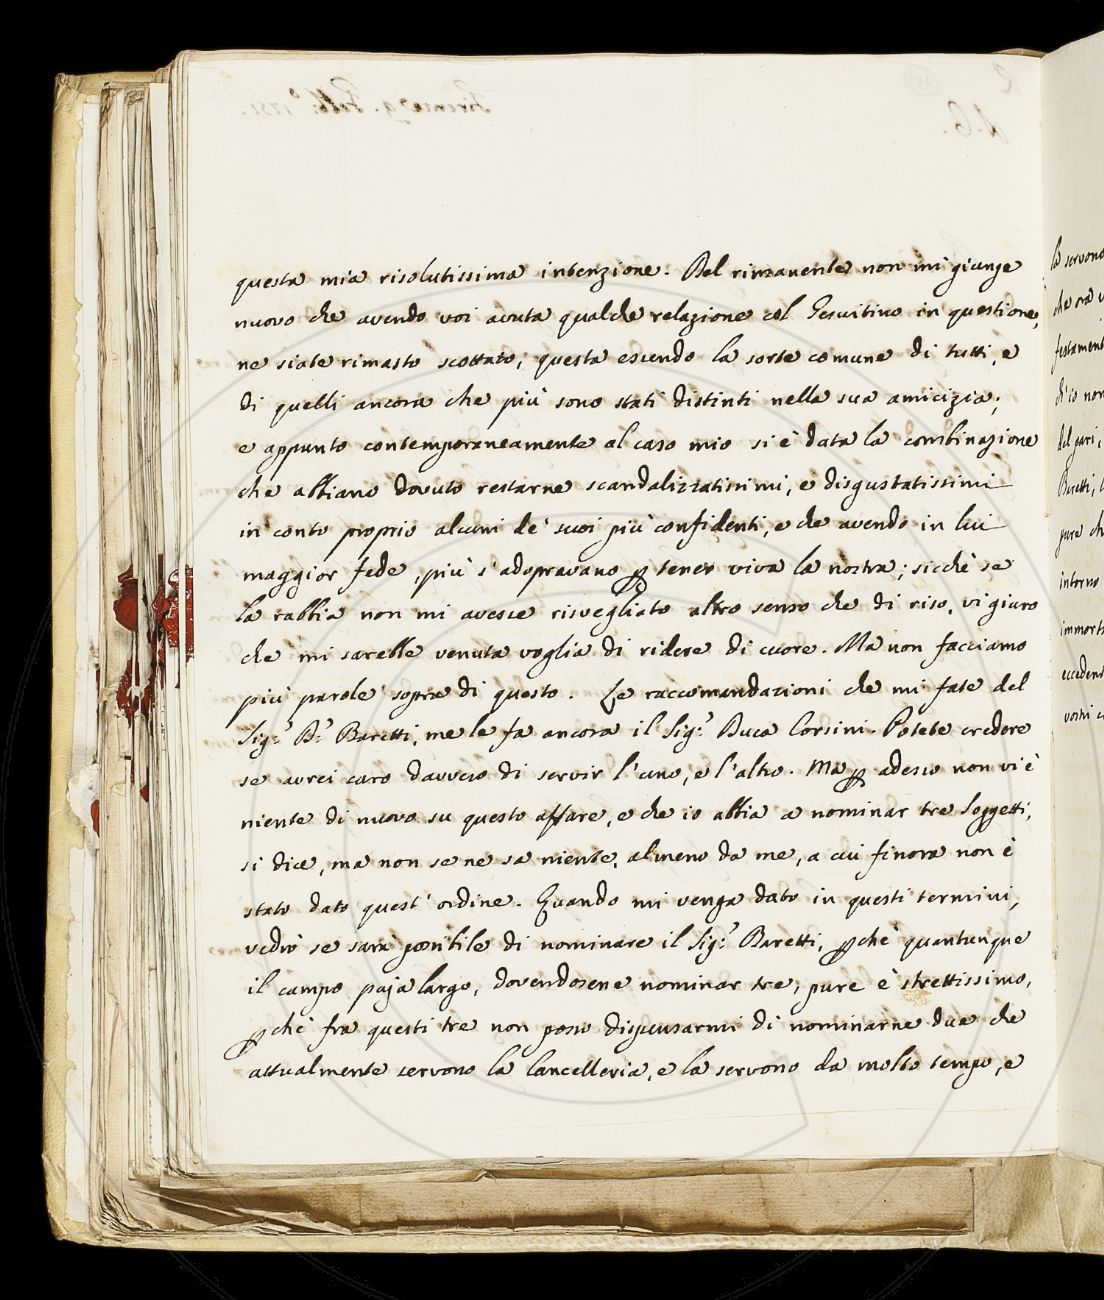 questa mia risolutissima intenzione. Del rimanente non mi giunge
nuovo che avendo voi avuta qualche relazione col Gesuitino in questione,
ne siate rimasto scottato; questa essendo la sorte comune di tutti, e
di quelli ancora che più sono stati distinti nella sua amicizia;
e appunto contemporaneamente al caso mio si è data la combinazione
che abbiano dovuto restarne scandalizzatissimi, e disgustatissimi
in conto proprio alcuni de' suoi più confidenti, e che avendo in lui
maggior fede, più s'adopravano ꝑ tener viva la nostra; sicchè se
la rabbia non mi avesse risvegliato altro senso che di riso, vi giuro
che mi sarebbe venuta voglia di ridere di cuore. Ma non facciamo
più parole sopra di questo. Le raccomandazioni che mi fate del
Sig.r D.r Baretti, me le fa ancora il Sig.r Duca Corsini. Potete credere
se avrei caro davvero di servir l'uno, e l'altro. Ma ꝑ adesso non vi è
niente di nuovo su questo affare, e che io abbia a nominar tre soggetti,
si dice, ma non se ne sa niente, almeno da me, a cui finora non è
stato dato quest' ordine. Quando mi venga dato in questi termini,
vedrò se sarà possibile di nominare il Sig.r Baretti, ꝑchè quantunque
il campo paja largo, dovendosene nominar tre, pure è strettissimo,
ꝑchè fra questi tre non posso dispensarmi di nominarne due che
attualmente servono la Cancelleria, e la servono da molto tempo, e
la servono
che ora
del pari,
Baretti,
pure ch
intorno
vostri